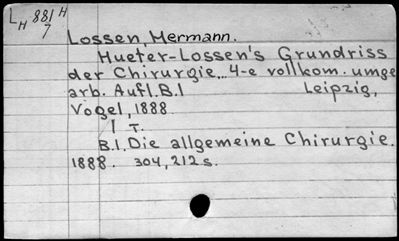 LH 881 H
7
Lossen, Mermann.
Hueter-Lossen's Grundriss
der Chirurgie... 4-e vollkom. umge
arb. Aufl. B.1 Leipzig,
Vogel, 1888.
1 т.
B.1. Die allgemeine Chirurgie.
1888. 304, 212 s.